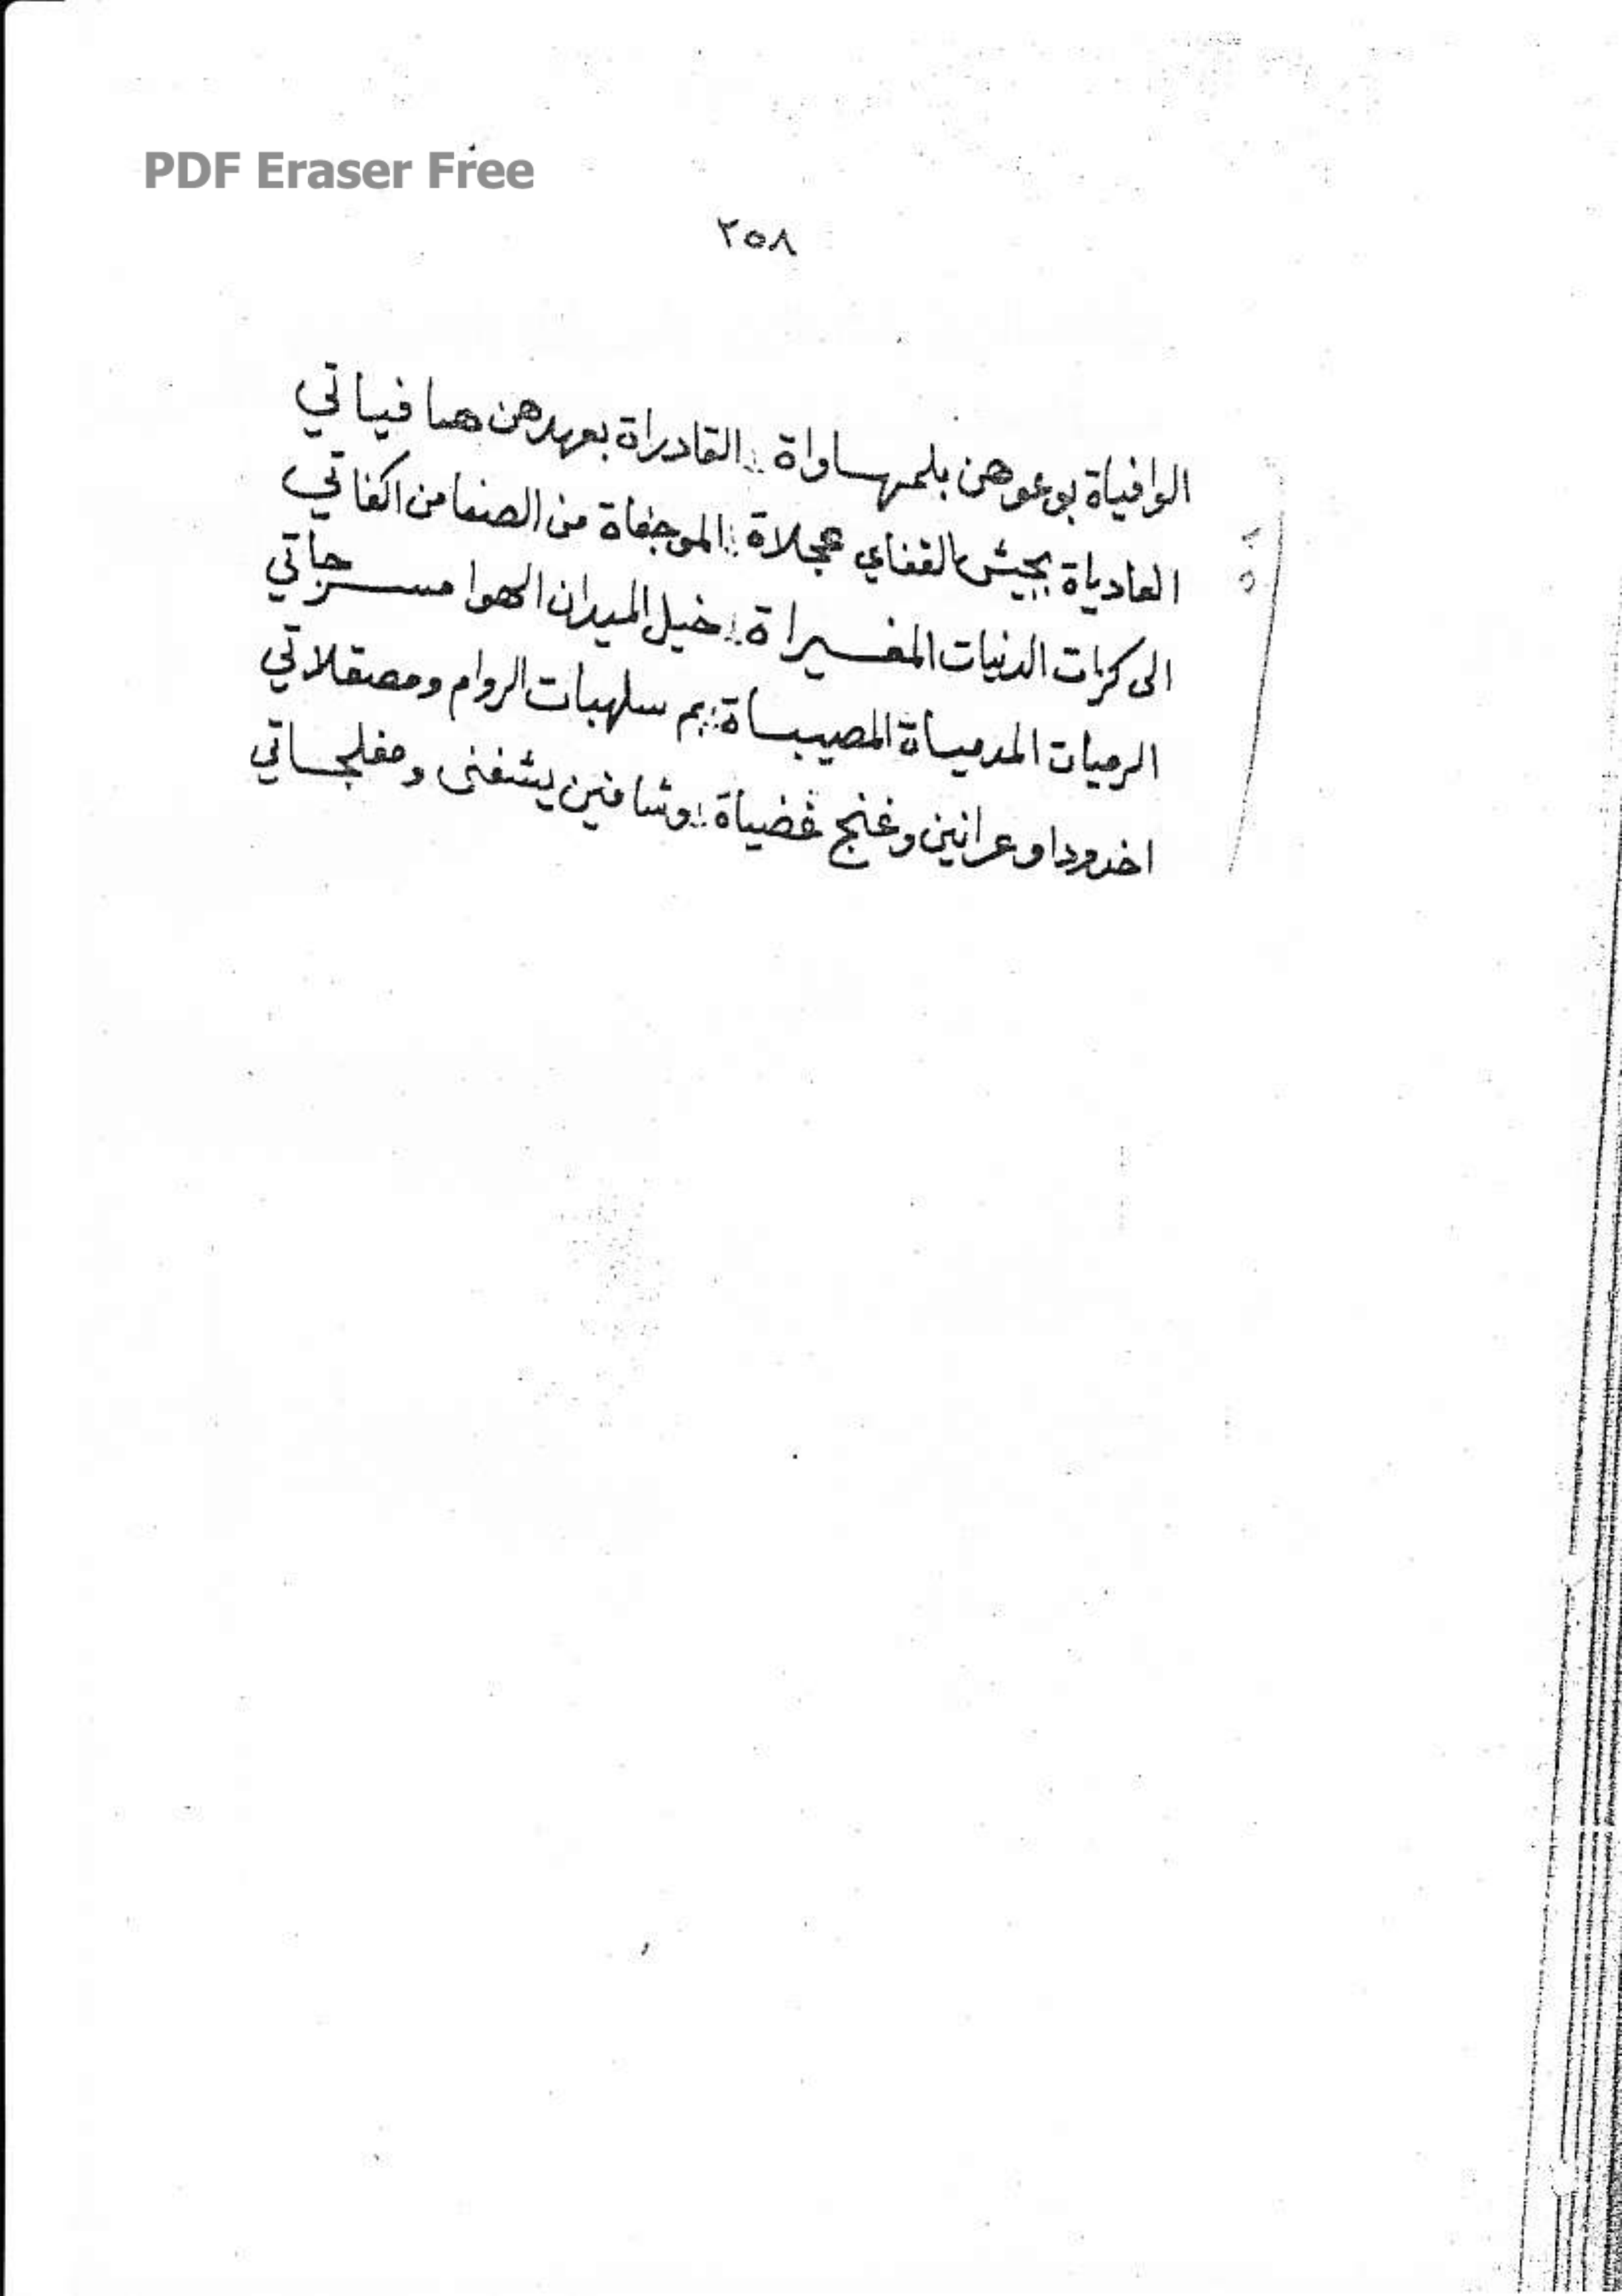 PDF Eraser Free
٢٥٨
الوافياة بوعوهن بلمهساواة :: القادراة بعهدهن هافياتي
العادياة بجيش القفاي عجلاة :: الموجفاة من الصنفا من اكفاتي
الى كرات الدنيات المغسيراة :: خيل الميدان الهوا مسرجاتي
الرميات المدمياة المصيبساة :: بم سلهبات الروام ومصقلاتي
اخدودا وعرانين وغنج غضياة :: وشافنين يشفنى ومفلجاتي
٥٨